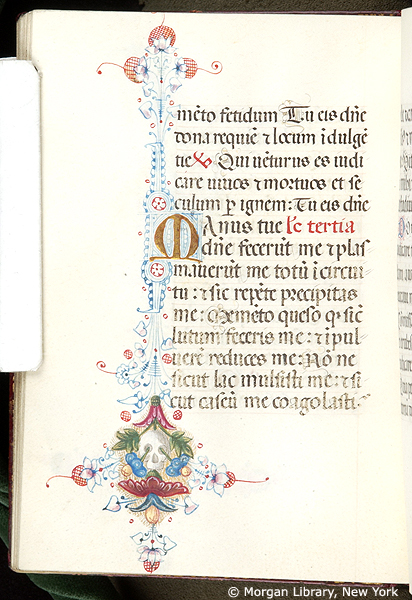 mēto fetidum Tu eis dn̄e
dona requiē ⁊ locum īdulgē
tie ℟ Qui uēturus es iudi
care uiuos ⁊ mortuos et se
culum ꝑ ignem: Tu eis dn̄e
Manus tue lc̄ tertia
dn̄e fecerūt me ⁊ plas
mauerūt me totū ī circui
tu: ⁊ sic repēte precipitas
me: Memēto queso ꝙ sic̄
lutum feceris me: ⁊ ī pul
uerē reduces me: Nōne
sicut lac mulsisti me: ⁊ si
cut caseū me coagolasti:
© Morgan Library, New York